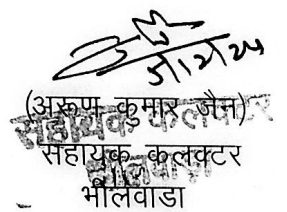 (अरूण कुमार जैन)
सहायक कलक्टर
सहायक कलक्टर
भीलवाडा